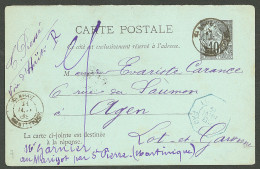 CARTE POSTALE
Ce côté est exclusivement réservé à l'adresse.
Monsieur Evariste Carance
6 rue du Saumon
Agen
Lot-et-Garonne
La carte ci-jointe est destinée
à la réponse.
Garnier
au Marigot par St Pierre (Martinique)
10